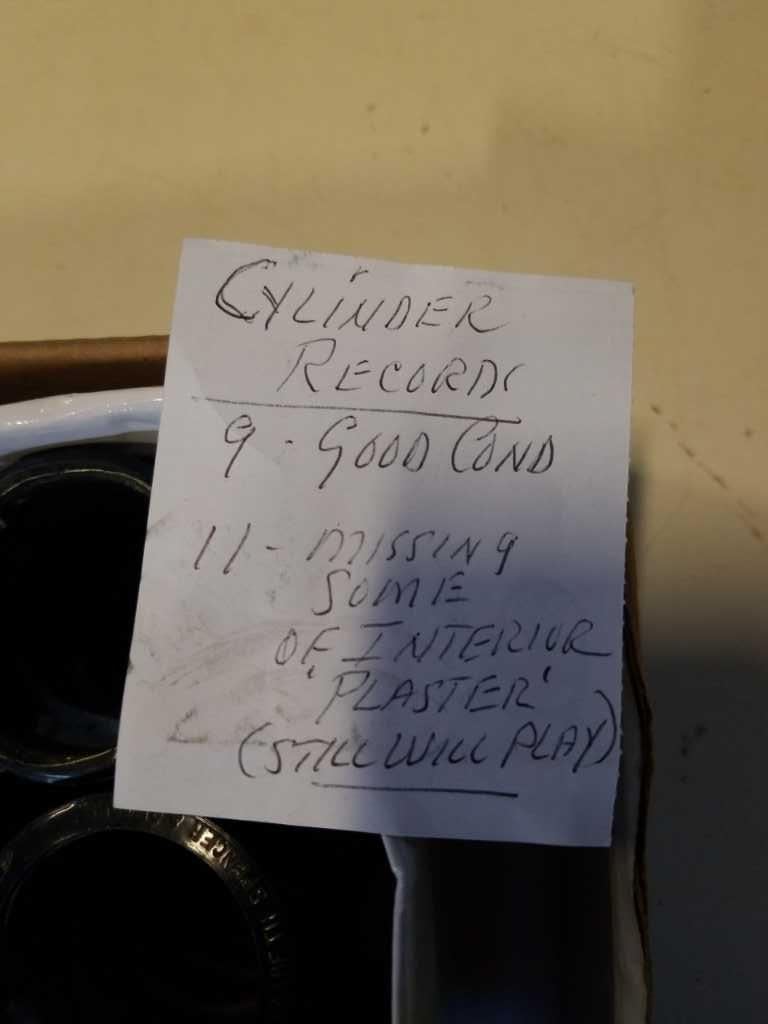 CYLINDER
RECORDS
9 - GOOD COND
11 - MISSING
SOME
OF INTERIOR
'PLASTER'
(STILL WILL PLAY)
SPENCER